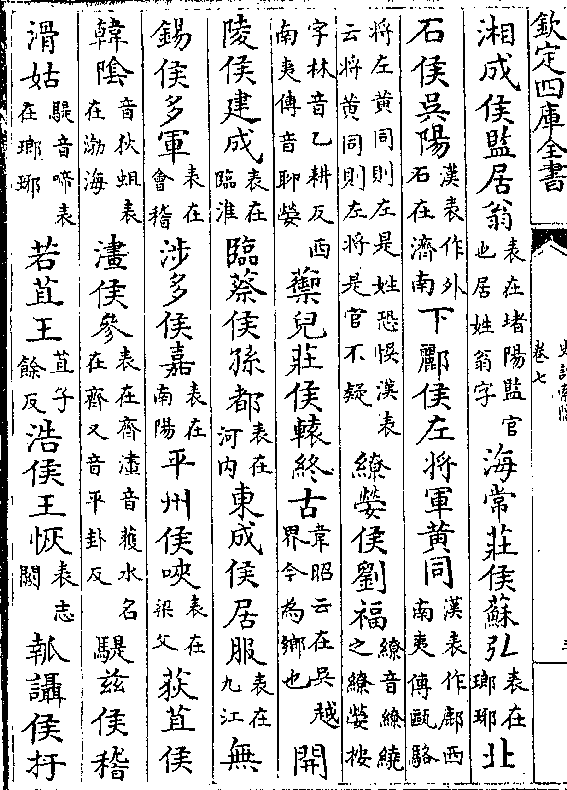 欽定四庫全書
史記索隱
卷七
三
湘成侯監居翁表在堵陽監官也居姓翁字海常莊侯蘇弘表在瑯琊北
石侯吳陽漢表作外石在濟南下酈侯左將軍黃同漢表作鄜西南夷傳甌駱
將左黃同則左是姓恐悞漢表云將黃同則左將是官不疑繚嫈侯劉福繚音繚繞之繚嫈按
字林音乙耕反西南夷傳音聊嫈蘌兒莊侯轅終古韋昭云在吳越界今為鄉也開
陵侯建成表在臨淮臨蔡侯孫都表在河内東成侯居服表在九江無
錫侯多軍表在會稽涉多侯嘉表在南陽平州侯唊表在梁父荻苴侯
韓隂音狄蛆表在渤海澅侯參表在齊澅音獲水名在齊又音平卦反騠兹侯稽
滑姑騠音啼表在瑯琊若苴王苴子餘反浩侯王恢表志闕瓡讘侯扜